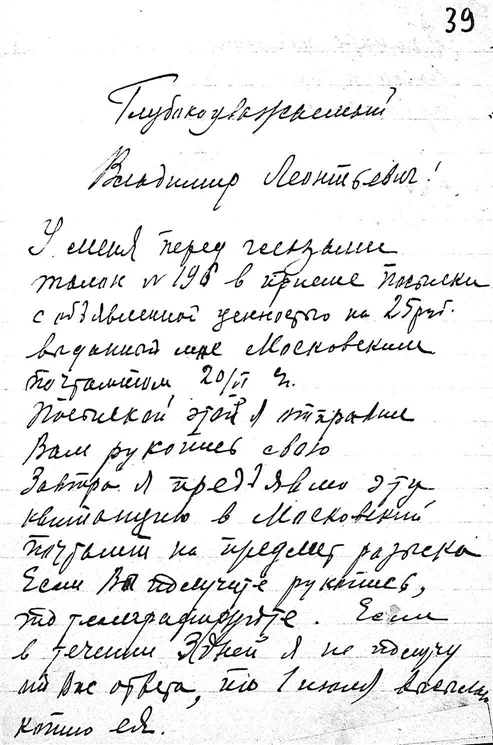 39
Глубокоуважаемый
Владимир Леонтьевич!
У меня перед глазами
талон № 196 в приеме посылки
с объявленной ценностью на 25 руб.
выданный мне Московским
почтамтом 20/II
Посылкой этой я отправил
Вам рукопись свою
Завтра я предъявлю эту
квитанцию в Московский
почтамт на предмет розыска
Если Вы получите рукопись,
то телеграфируйте. Если
в течении 3 дней я не получу
от Вас ответа, то 1 июля высылаю
копию ея.